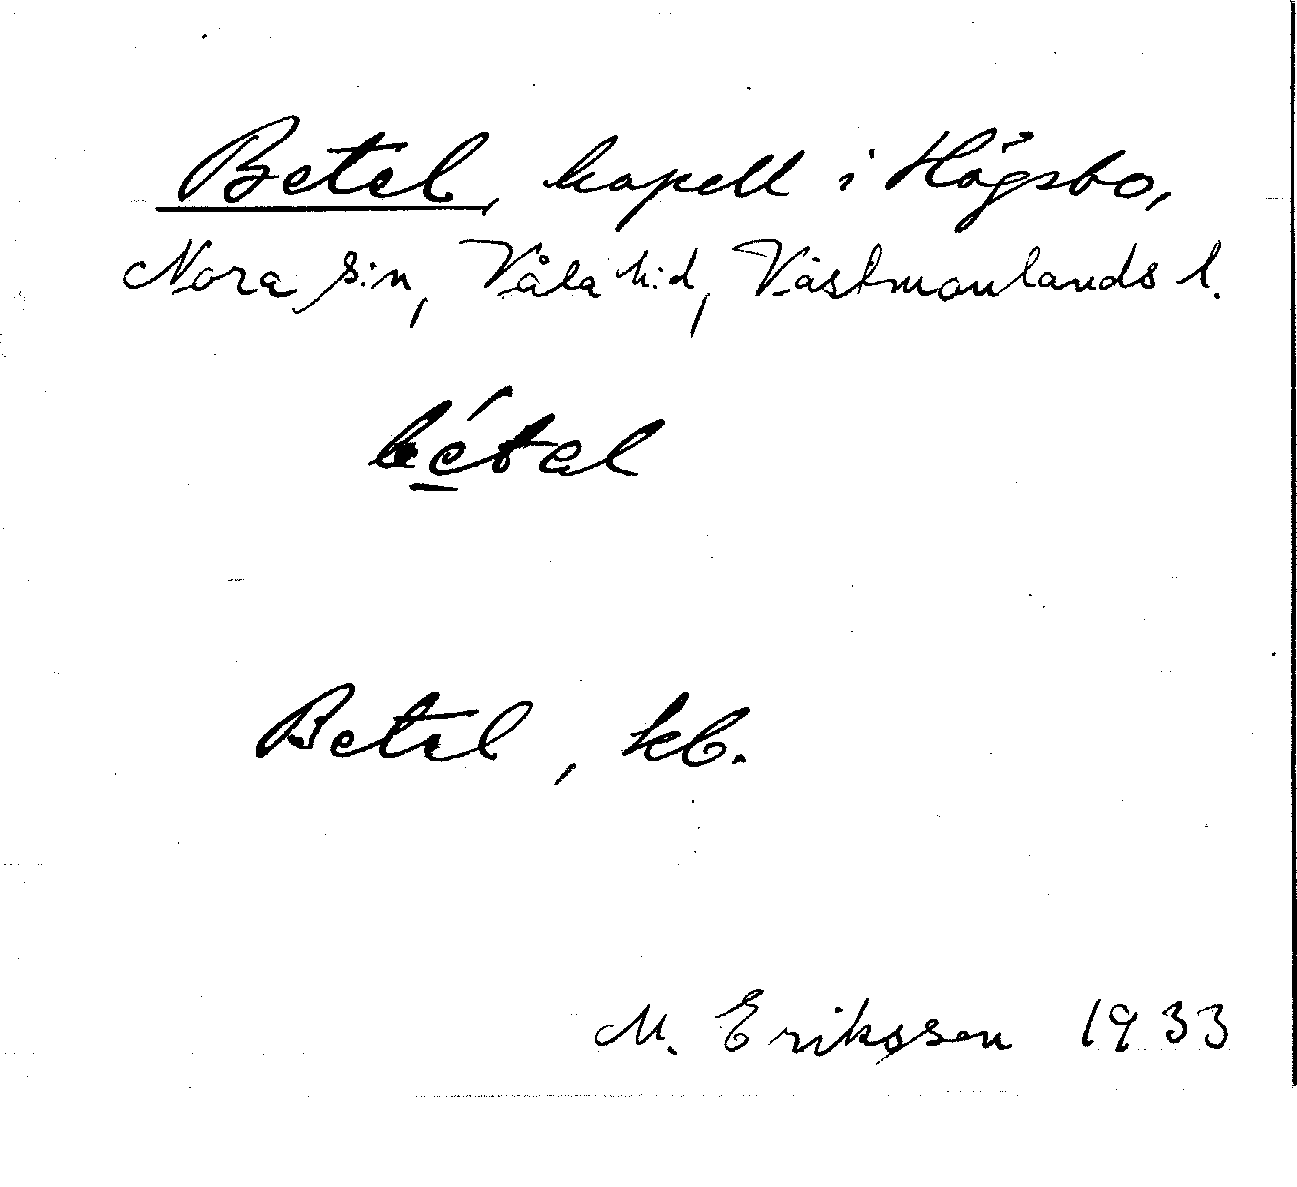 Betel, kapell i Högsbo,
Nora s:n, Våla h:d, Västmanlands l.
bétal
Betel, kb.
M. Eriksson 1933